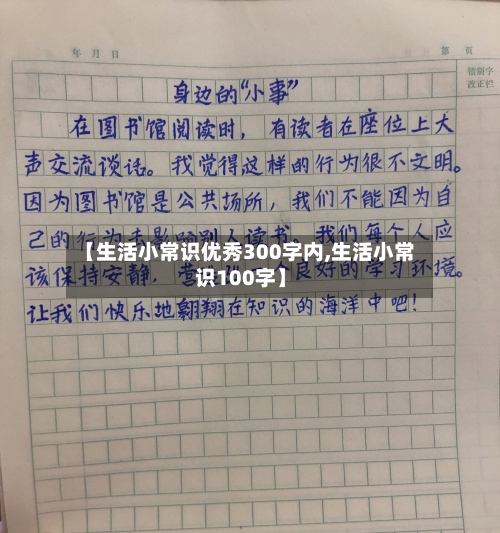 年 月 日
第 页
错别字
改正栏
身边的“小事”
在图书馆阅读时，有读者在座位上大
声交流谈话。我觉得这样的行为很不文明。
因为图书馆是公共场所，我们不能因为自
己的行为去影响别人读书。我们每个人应
【生活小常识优秀300字内,生活小常
识100字】
该保持安静，营造一个良好的学习环境。
让我们快乐地翱翔在知识的海洋中吧！